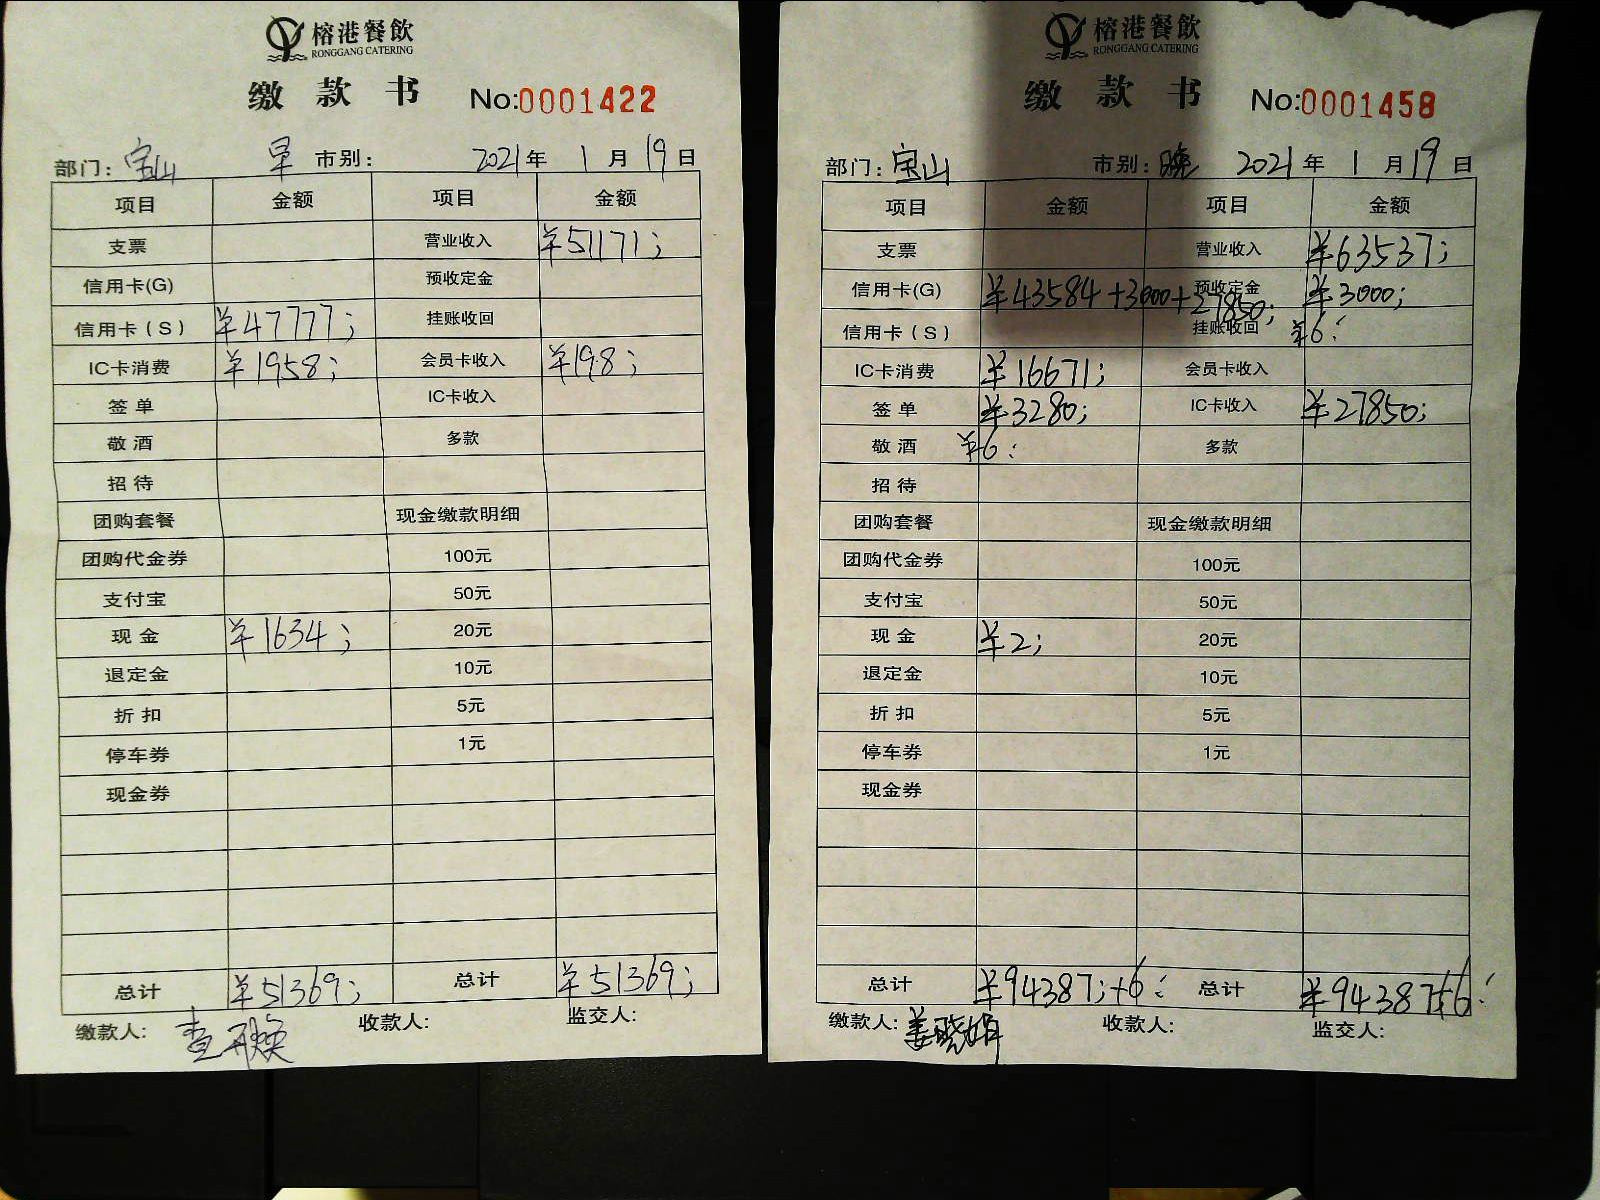 榕港餐飲
RONGGANG CATERING
缴 款 书 No:0001422
部门: 宝山 早 市别: 2021年 1月19日
项目 金额 项目 金额
支票 营业收入 ¥51171;
信用卡(G) 预收定金
信用卡(S) ¥47777; 挂账收回
IC卡消费 ¥1958; 会员卡收入 ¥198;
签单 IC卡收入
敬酒 多款
招待
团购套餐 现金缴款明细
团购代金券 100元
支付宝 50元
现金 ¥1634; 20元
退定金 10元
折扣 5元
停车券 1元
现金券
总计 ¥51369; 总计 ¥51369;
缴款人: 收款人: 监交人:
榕港餐飲
RONGGANG CATERING
缴 款 书 No:0001458
部门: 宝山 市别: 晚 2021年 1月19日
项目 金额 项目 金额
支票 营业收入 ¥63537;
信用卡(G) ¥43584+3000+27850; 预收定金 ¥3000;
信用卡(S) 挂账收回 ¥6:
IC卡消费 ¥16671; 会员卡收入
签单 ¥3280; IC卡收入 ¥27850;
敬酒 ¥6: 多款
招待
团购套餐 现金缴款明细
团购代金券 100元
支付宝 50元
现金 ¥2; 20元
退定金 10元
折扣 5元
停车券 1元
现金券
总计 ¥94387;+6: 总计 ¥94387+6:
缴款人: 姜晓娟 收款人: 监交人: